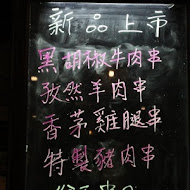 新品上市
黑胡椒牛肉串
孜然羊肉串
香茅雞腿串
特製豬肉串